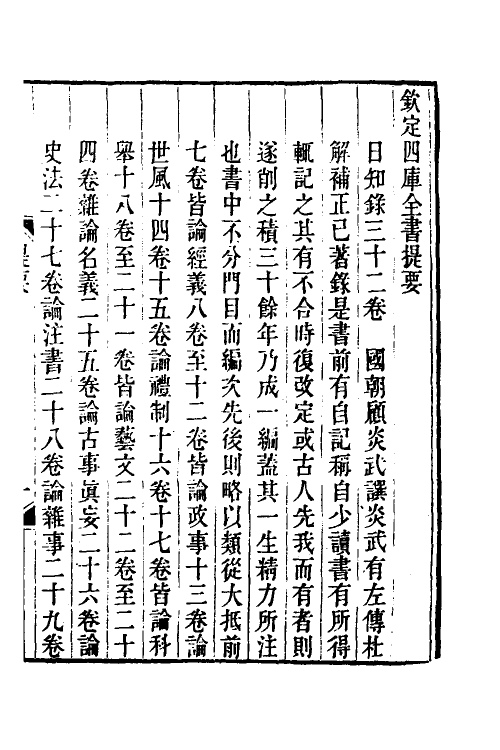 欽定四庫全書提要
日知錄三十二卷　國朝顧炎武譔炎武有左傳杜
解補正已著錄是書前有自記稱自少讀書有所得
輒記之其有不合時復改定或古人先我而有者則
遂削之積三十餘年乃成一編蓋其一生精力所注
也書中不分門目而編次先後則略以類從大抵前
七卷皆論經義八卷至十二卷皆論政事十三卷論
世風十四卷十五卷論禮制十六卷十七卷皆論科
舉十八卷至二十一卷皆論藝文二十二卷至二十
四卷雜論名義二十五卷論古事眞妄二十六卷論
史法二十七卷論注書二十八卷論雜事二十九卷